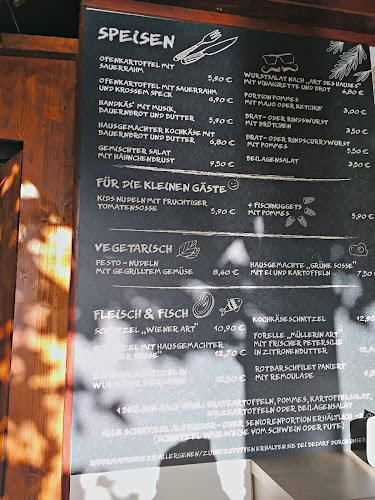 SPEISEN
OFENKARTOFFEL MIT
SAUERRAHM 5,90 €
OFENKARTOFFEL MIT SAUERRAHM
UND KROSSEM SPECK 6,90 €
HANDKÄS' MIT MUSIK,
BAUERNBROT UND BUTTER 5,90 €
HAUSGEMACHTER KOCHKÄSE MIT
BAUERNBROT UND BUTTER 6,80 €
GEMISCHTER SALAT
MIT HÄHNCHENBRUST 9,50 €
WURSTSALAT NACH „ART DES HAUSES"
MIT VINAIGRETTE UND BROT 6,80 €
PORTION POMMES
MIT MAJO ODER KETCHUP 3,00 €
BRAT- ODER RINDSWURST
MIT BRÖTCHEN 3,50 €
BRAT- ODER RINDSCURRYWURST
MIT POMMES
BEILAGENSALAT 3,50 €
FÜR DIE KLEINEN GÄSTE
KIDS NUDELN MIT FRUCHTIGER
TOMATENSOSSE 5,90 €
4 FISCHNUGGETS
MIT POMMES 5,90 €
VEGETARISCH
PESTO-NUDELN
MIT GEGRILLTEM GEMÜSE 8,60 €
HAUSGEMACHTE „GRÜNE SOSSE"
MIT EI UND KARTOFFELN 7,50
FLEISCH & FISCH
SCHNITZEL „WIENER ART" 10,90 €
SCHNITZEL MIT HAUSGEMACHTER
SOSSE" 12,70 €
SCHNITZEL IN
12,50 €
KOCHKÄSESCHNITZEL 12,90
FORELLE „MÜLLERIN ART"
MIT FRISCHER PETERSILIE
IN ZITRONENBUTTER
ROTBARSCHFILET PANIERT
MIT REMOULADE
BRATKARTOFFELN, POMMES, KARTOFFELSALAT,
SALZKARTOFFELN ODER BEILAGENSALAT
ALLE SCHNITZEL ALS KINDER- ODER SENIORENPORTION ERHÄLTLICH
(SCHNITZEL WAHLWEISE VOM SCHWEIN ODER PUTE)
INFORMATIONEN ZU ALLERGENEN/ZUSATZSTOFFEN ERHALTEN SIE BEI BEDARF DURCH UNSER